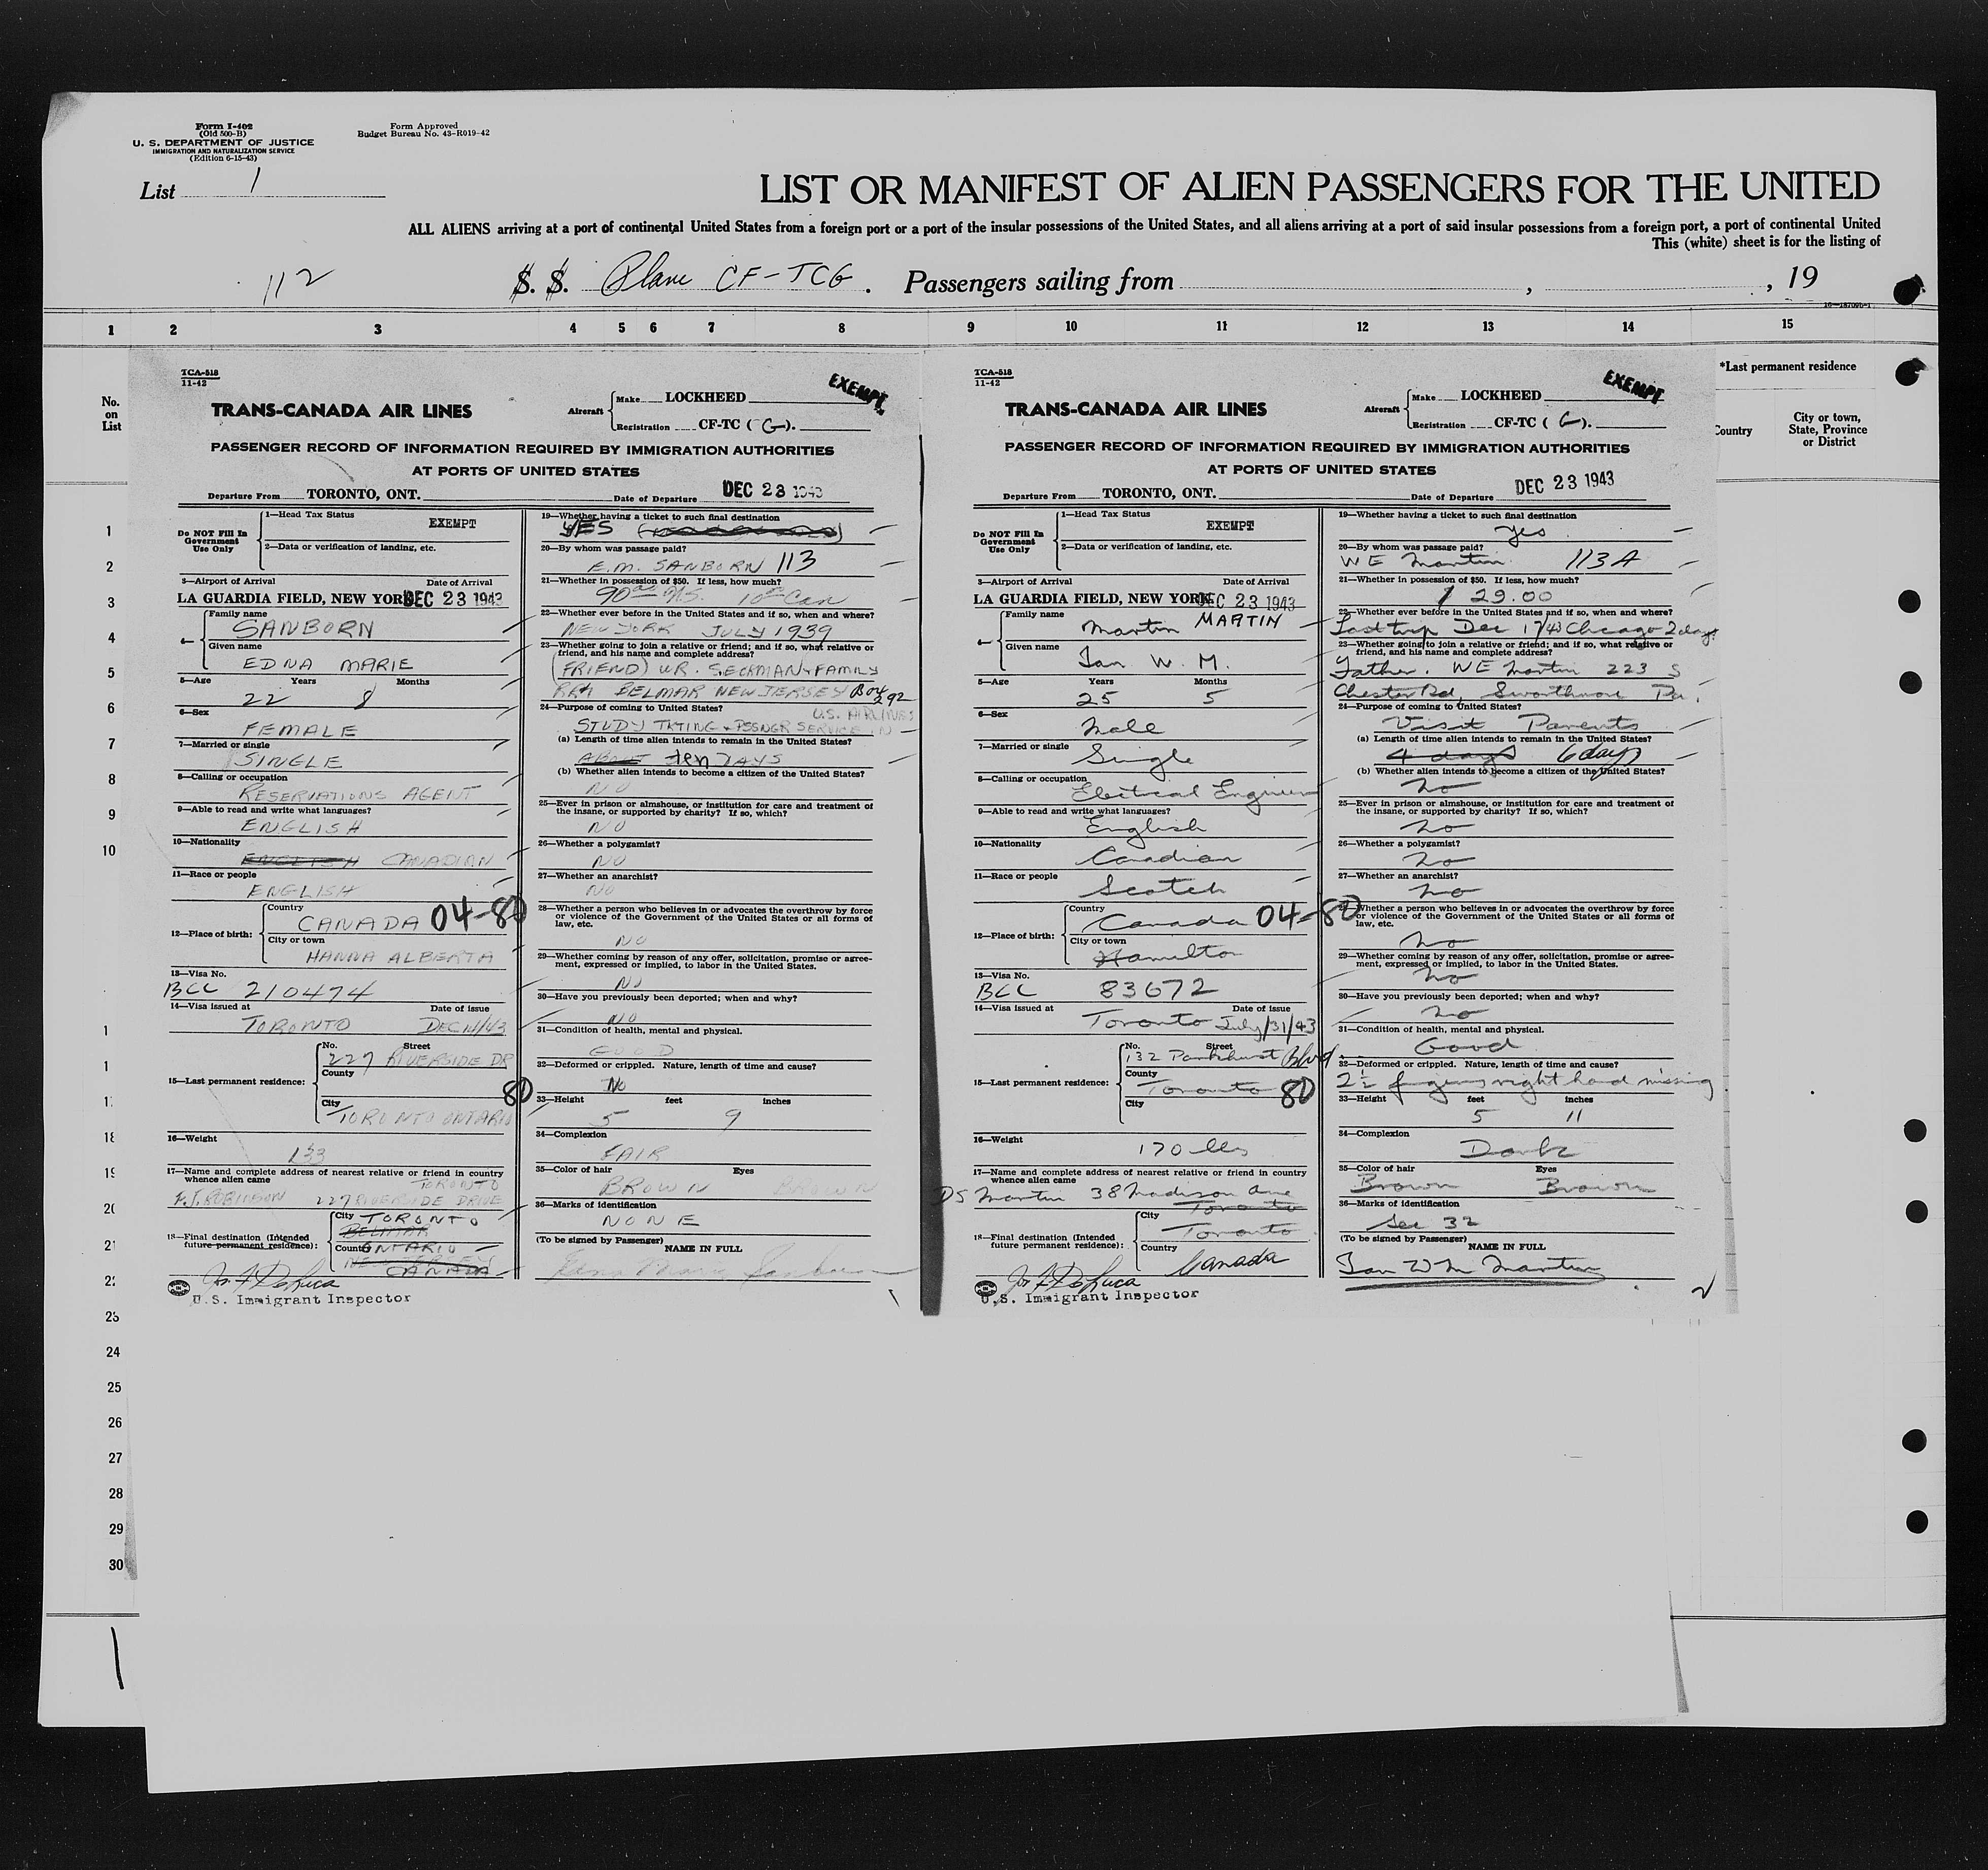 Form I-402
(Old 500-B)
U. S. DEPARTMENT OF JUSTICE
IMMIGRATION AND NATURALIZATION SERVICE
(Edition 6-15-43)
Form Approved
Budget Bureau No. 43-R019-42
List 1
LIST OR MANIFEST OF ALIEN PASSENGERS FOR THE UNITED
ALL ALIENS arriving at a port of continental United States from a foreign port or a port of the insular possessions of the United States, and all aliens arriving at a port of said insular possessions from a foreign port, a port of continental United
This (white) sheet is for the listing of
112 S. S. Plane CF-TCG . Passengers sailing from , , 19
1 2 3 4 5 6 7 8 9 10 11 12 13 14 15
No.
on
List
*Last permanent residence
Country
City or town,
State, Province
or District
1
2
3
4
5
6
7
8
9
10
1
1
1
18
19
20
21
22
23
24
25
26
27
28
29
30
TCA-518
11-42
EXEMPT
TRANS-CANADA AIR LINES
Aircraft
Make LOCKHEED
Registration CF-TC ( G ).
PASSENGER RECORD OF INFORMATION REQUIRED BY IMMIGRATION AUTHORITIES
AT PORTS OF UNITED STATES
Departure From TORONTO, ONT. Date of Departure DEC 23 1943
Do NOT Fill In
Government
Use Only
1—Head Tax Status
EXEMPT
2—Data or verification of landing, etc.
3—Airport of Arrival Date of Arrival
LA GUARDIA FIELD, NEW YORK DEC 23 1943
4— Family name
SANBORN
Given name
EDNA MARIE
5—Age Years Months
22 8
6—Sex
FEMALE
7—Married or single
SINGLE
8—Calling or occupation
RESERVATIONS AGENT
9—Able to read and write what languages?
ENGLISH
10—Nationality
ENGLISH CANADIAN
11—Race or people
ENGLISH
12—Place of birth:
Country
CANADA 04-80
City or town
HANNA ALBERTA
13—Visa No.
BCC 210474
14—Visa issued at Date of issue
TORONTO DEC 14/43
15—Last permanent residence:
No. Street
227 RIVERSIDE DR
County
80
City
TORONTO ONTARIO
16—Weight
133
17—Name and complete address of nearest relative or friend in country
whence alien came
TORONTO
F.J. ROBINSON 227 RIVERSIDE DRIVE
18—Final destination (Intended
future permanent residence):
City TORONTO
BELMAR
Country ONTARIO
NEW JERSEY
CANADA
U.S. Immigrant Inspector
19—Whether having a ticket to such final destination
YES
20—By whom was passage paid?
E.M. SANBORN 113
21—Whether in possession of $50. If less, how much?
90 00 U.S. 10 00 Can
22—Whether ever before in the United States and if so, when and where?
NEW YORK JULY 1939
23—Whether going to join a relative or friend; and if so, what relative or
friend, and his name and complete address?
(FRIEND) WR. SECKMAN & FAMILY
RR#1 BELMAR NEW JERSEY Box 292
24—Purpose of coming to United States?
U.S. AIRLINES
STUDY TKTING & PSSNGR SERVICE IN
(a) Length of time alien intends to remain in the United States?
ABOUT Ten DAYS
(b) Whether alien intends to become a citizen of the United States?
NO
25—Ever in prison or almshouse, or institution for care and treatment of
the insane, or supported by charity? If so, which?
NO
26—Whether a polygamist?
NO
27—Whether an anarchist?
NO
28—Whether a person who believes in or advocates the overthrow by force
or violence of the Government of the United States or all forms of
law, etc.
NO
29—Whether coming by reason of any offer, solicitation, promise or agree-
ment, expressed or implied, to labor in the United States.
NO
30—Have you previously been deported; when and why?
NO
31—Condition of health, mental and physical.
GOOD
32—Deformed or crippled. Nature, length of time and cause?
No
33—Height feet inches
5 9
34—Complexion
FAIR
35—Color of hair Eyes
BROWN BROWN
36—Marks of identification
NONE
(To be signed by Passenger) NAME IN FULL
Edna Marie Sanborn
TCA-518
11-42
EXEMPT
TRANS-CANADA AIR LINES
Aircraft
Make LOCKHEED
Registration CF-TC ( G ).
PASSENGER RECORD OF INFORMATION REQUIRED BY IMMIGRATION AUTHORITIES
AT PORTS OF UNITED STATES
Departure From TORONTO, ONT. Date of Departure DEC 23 1943
Do NOT Fill In
Government
Use Only
1—Head Tax Status
EXEMPT
2—Data or verification of landing, etc.
3—Airport of Arrival Date of Arrival
LA GUARDIA FIELD, NEW YORK DEC 23 1943
4— Family name
Martin MARTIN
Given name
Ian W. M.
5—Age Years Months
25 5
6—Sex
Male
7—Married or single
Single
8—Calling or occupation
Electrical Engineer
9—Able to read and write what languages?
English
10—Nationality
Canadian
11—Race or people
Scotch
12—Place of birth:
Country
Canada 04-80
City or town
Hamilton
13—Visa No.
BCC 83672
14—Visa issued at Date of issue
Toronto July/31/43
15—Last permanent residence:
No. Street
132 Parkhurst Blvd.
County
Toronto 80
City
16—Weight
170 lbs
17—Name and complete address of nearest relative or friend in country
whence alien came
DS Martin 38 Madison Ave
Toronto
18—Final destination (Intended
future permanent residence):
City
Toronto
Country
Canada
U.S. Immigrant Inspector
19—Whether having a ticket to such final destination
Yes
20—By whom was passage paid?
WE Martin 113A
21—Whether in possession of $50. If less, how much?
$ 29.00
22—Whether ever before in the United States and if so, when and where?
Last trip Dec 17/43 Chicago 2 days
23—Whether going to join a relative or friend; and if so, what relative or
friend, and his name and complete address?
Father. WE Martin 223 S
Chester Rd, Swarthmore Pa.
24—Purpose of coming to United States?
Visit Parents
(a) Length of time alien intends to remain in the United States?
4 days 6 days
(b) Whether alien intends to become a citizen of the United States?
No
25—Ever in prison or almshouse, or institution for care and treatment of
the insane, or supported by charity? If so, which?
No
26—Whether a polygamist?
No
27—Whether an anarchist?
No
28—Whether a person who believes in or advocates the overthrow by force
or violence of the Government of the United States or all forms of
law, etc.
No
29—Whether coming by reason of any offer, solicitation, promise or agree-
ment, expressed or implied, to labor in the United States.
No
30—Have you previously been deported; when and why?
No
31—Condition of health, mental and physical.
Good
32—Deformed or crippled. Nature, length of time and cause?
2½ fingers right hand missing
33—Height feet inches
5 11
34—Complexion
Dark
35—Color of hair Eyes
Brown Brown
36—Marks of identification
See 32
(To be signed by Passenger) NAME IN FULL
Ian W M Martin